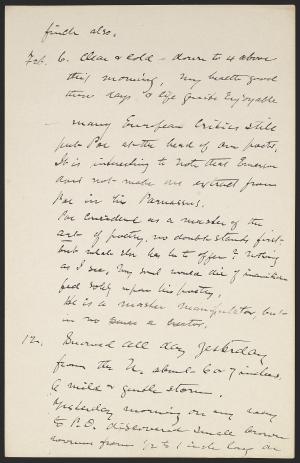 finds also.
Feb. 6. Clear & cold - down to 4 above
this morning, my health good
these days & life quite enjoyable
- many European Critics still
put Poe at the head of our poets.
It is interesting to note that Emerson
did not make an extract from
Poe in his Parnassus.
Poe considered as a master of the
art of poetry, no doubt stands first -
but what else has he to offer? Nothing
as I see, my soul would die of inanition
fed solely upon his poetry.
He is a master manipulator, but
in no sense a creator.
12. Snowed all day yesterday
from the N. about 6 or 7 inches.
A mild & gentle storm.
Yesterday morning on my way
to P.O. discovered small brown
worms from 1/2 to 1 inch long on